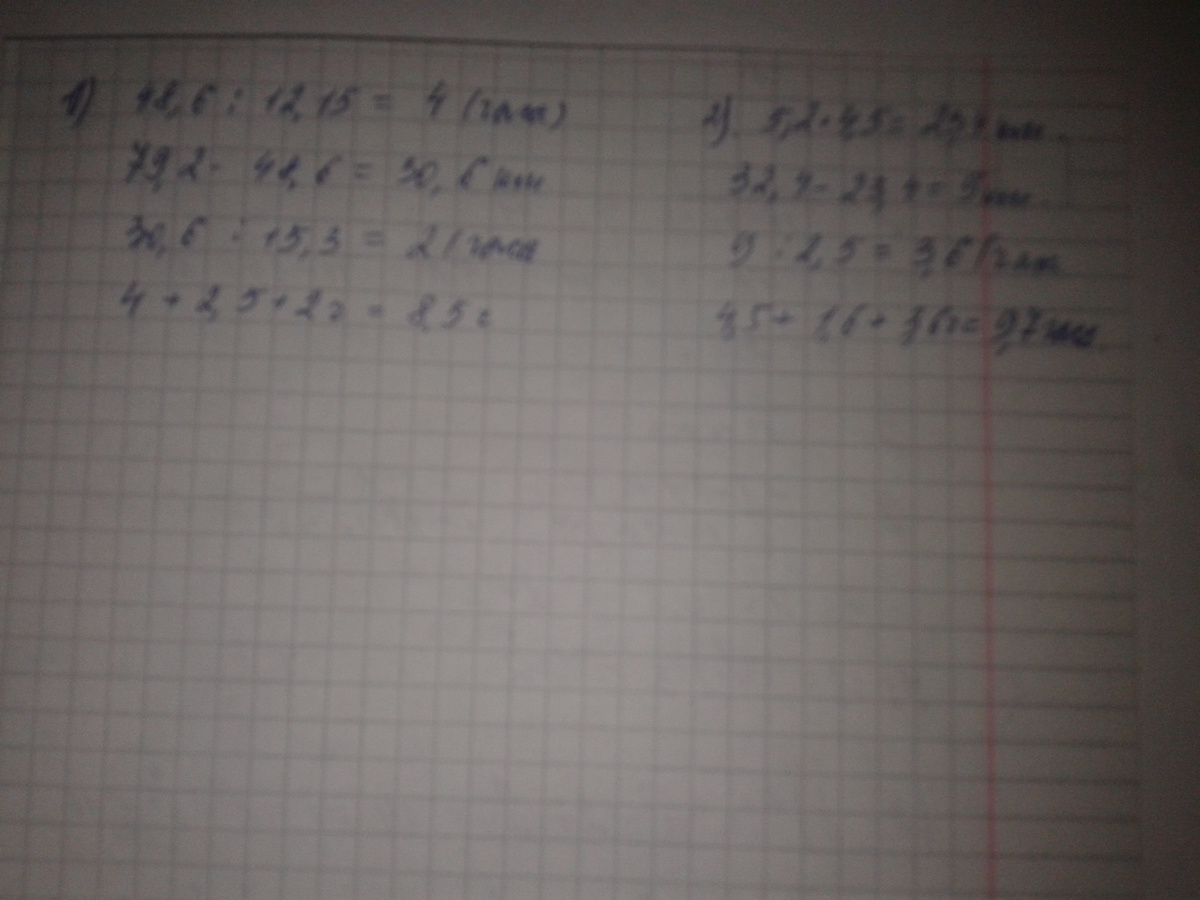 1) 48,6 : 12,15 = 4 (
79,2 - 48,6 = 30,6 км
30,6 : 15,3 = 2 (
4 + 2,5 + 2 г = 8,5 г
2) 5,2 · 4,5 = 23,4 км.
32,4 - 23,4 = 9 км.
9 : 2,5 = 3,6 (
4,5 + 1,6 + 3,6 г = 9,7